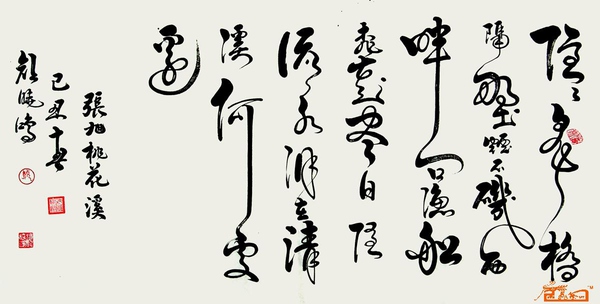 隱隱飛橋
隔野煙石磯西
畔问漁船
桃花盡日隨
流水洞在清
溪何處
邊
張旭桃花溪
己丑十月